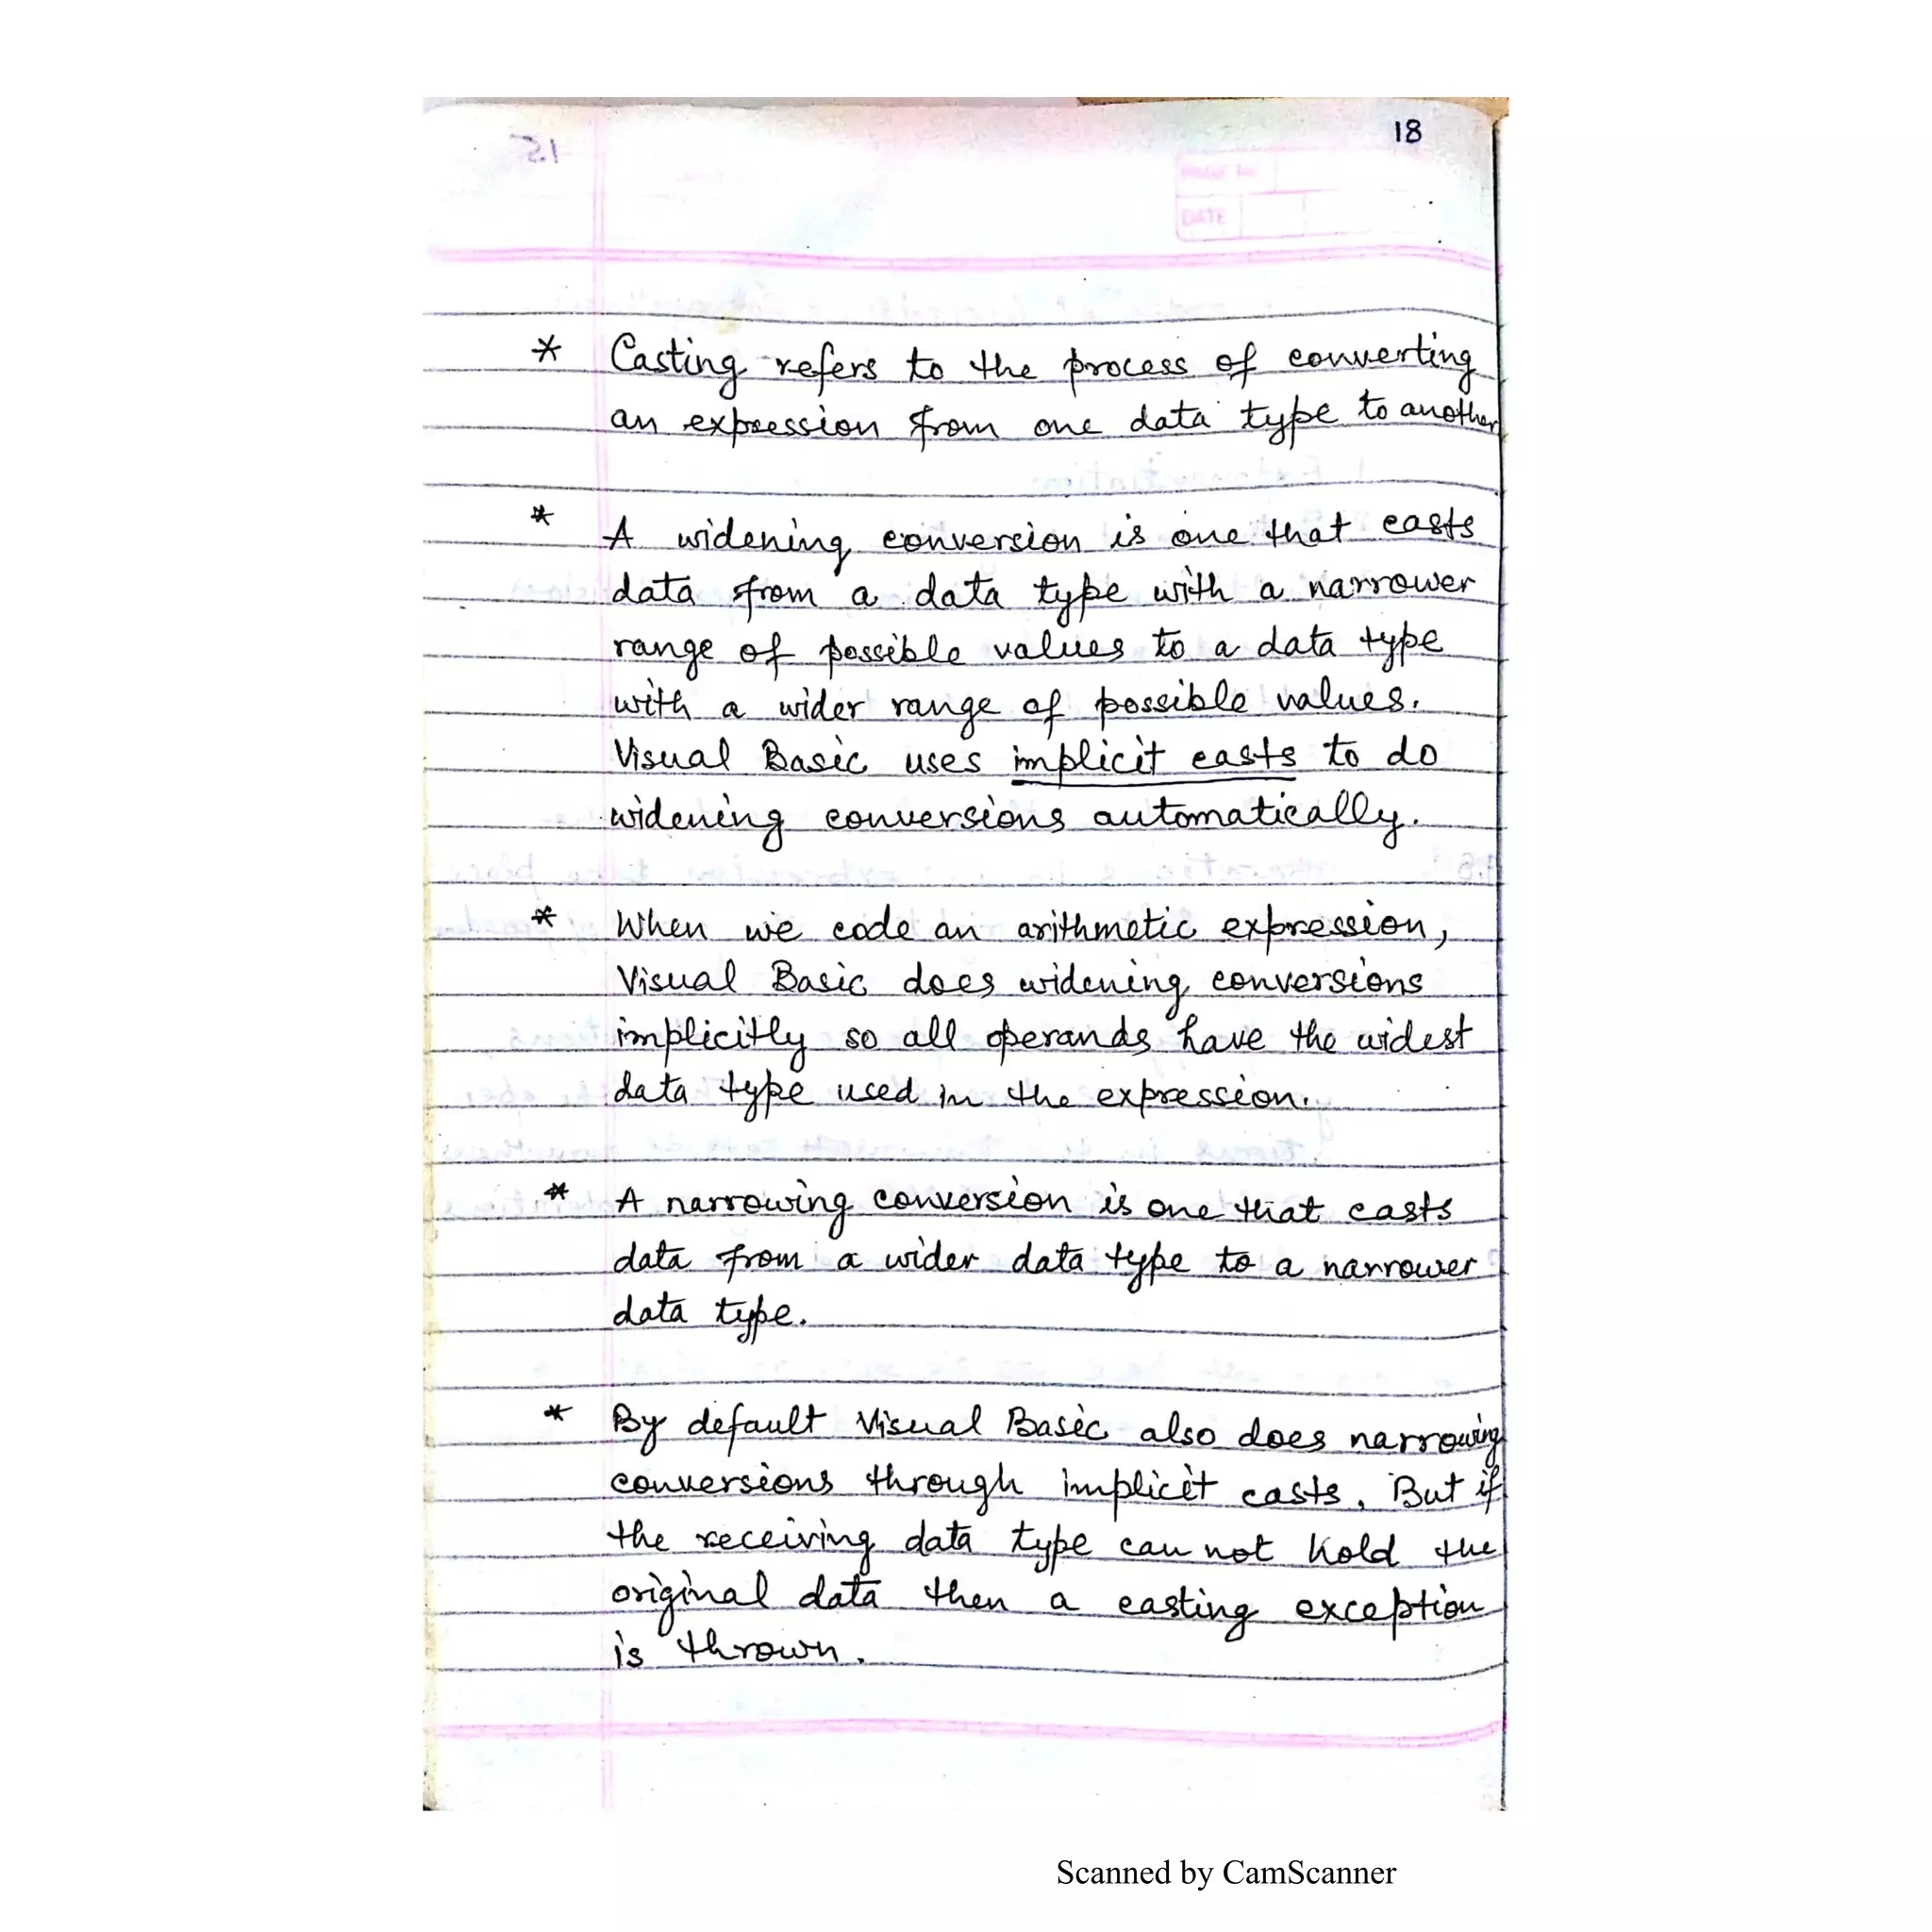 18
PAGE No.
DATE
* Casting refers to the process of converting
an expression from one data type to another
* A widening conversion is one that casts
data from a data type with a narrower
range of possible values to a data type
with a wider range of possible values.
Visual Basic uses implicit casts to do
widening conversions automatically.
* When we code an arithmetic expression,
Visual Basic does widening conversions
implicitly so all operands have the widest
data type used in the expression.
* A narrowing conversion is one that casts
data from a wider data type to a narrower
data type.
* By default Visual Basic also does narrowing
conversions through implicit casts. But if
the receiving data type can not hold the
original data then a casting exception
is thrown.
Scanned by CamScanner